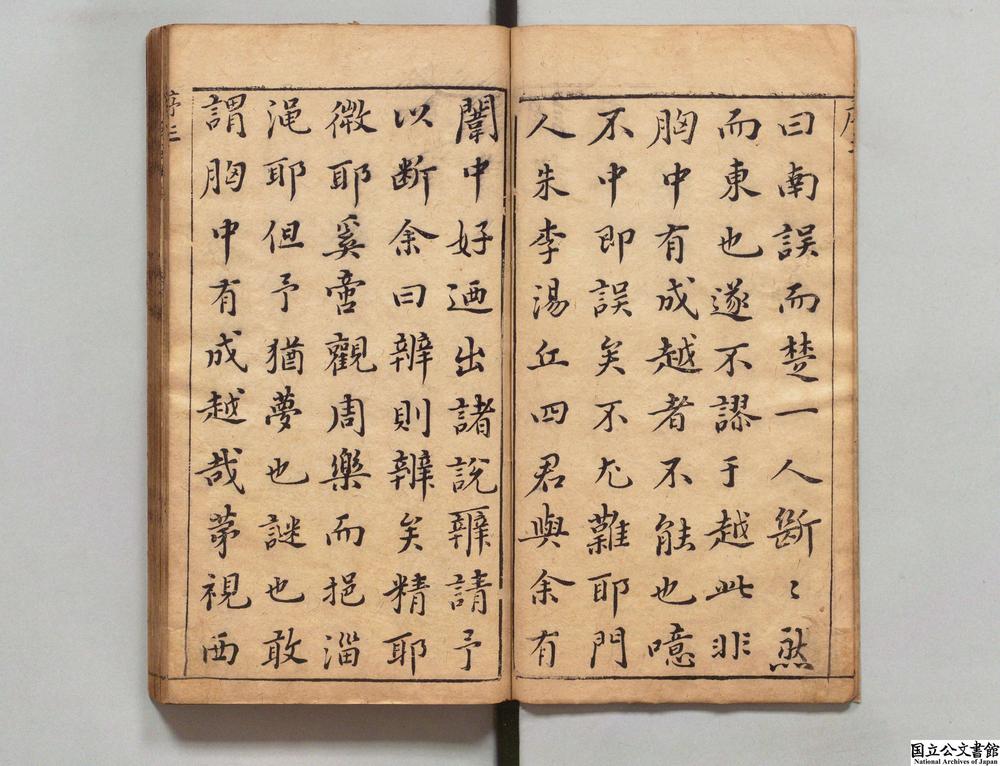 曰南誤而楚一人斷〻然
而東也遂不謬于越此非
胸中有成越者不能也噫
不中即誤矣不尤難耶門
人朱李湯丘四君與余有
闈中好迺出諸說辨請予
以断余曰辨則辨矣精耶
微耶奚啻觀周樂而挹淄
渑耶但予猶夢也謎也敢
謂胸中有成越哉苐視西
序三
国立公文書館
National Archives of Japan